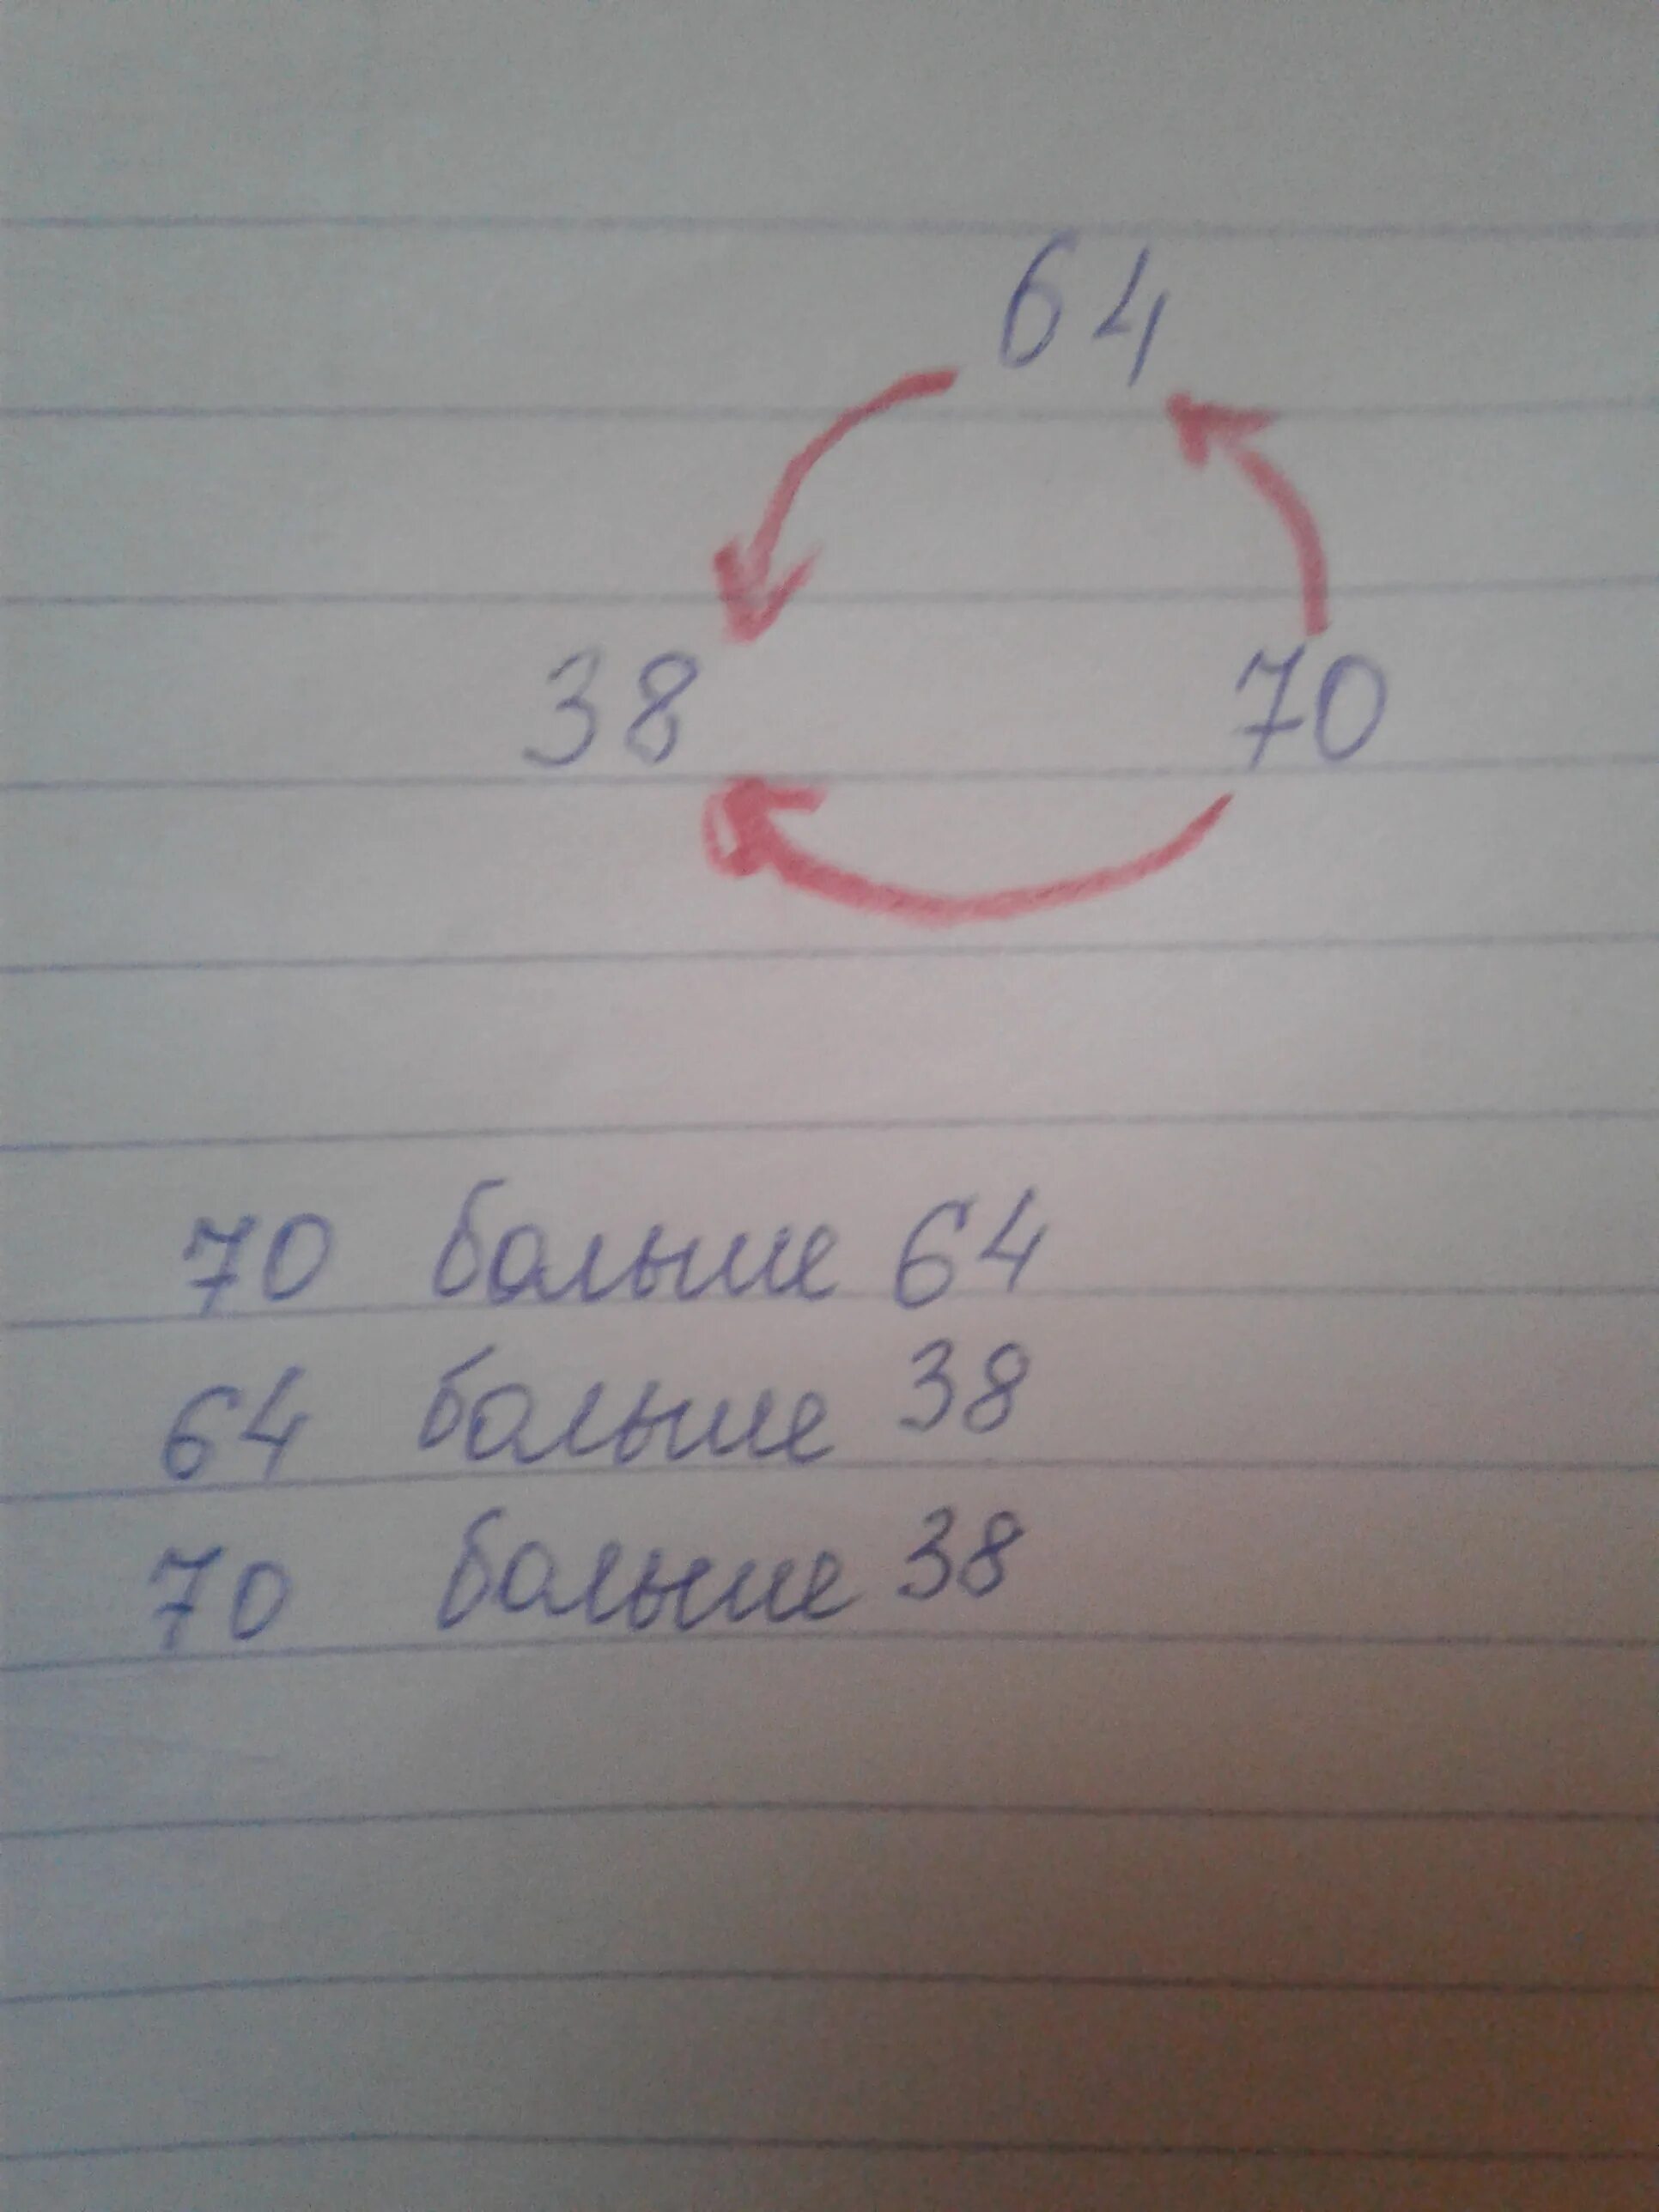 64
38 70
70 больше 64
64 больше 38
70 больше 38